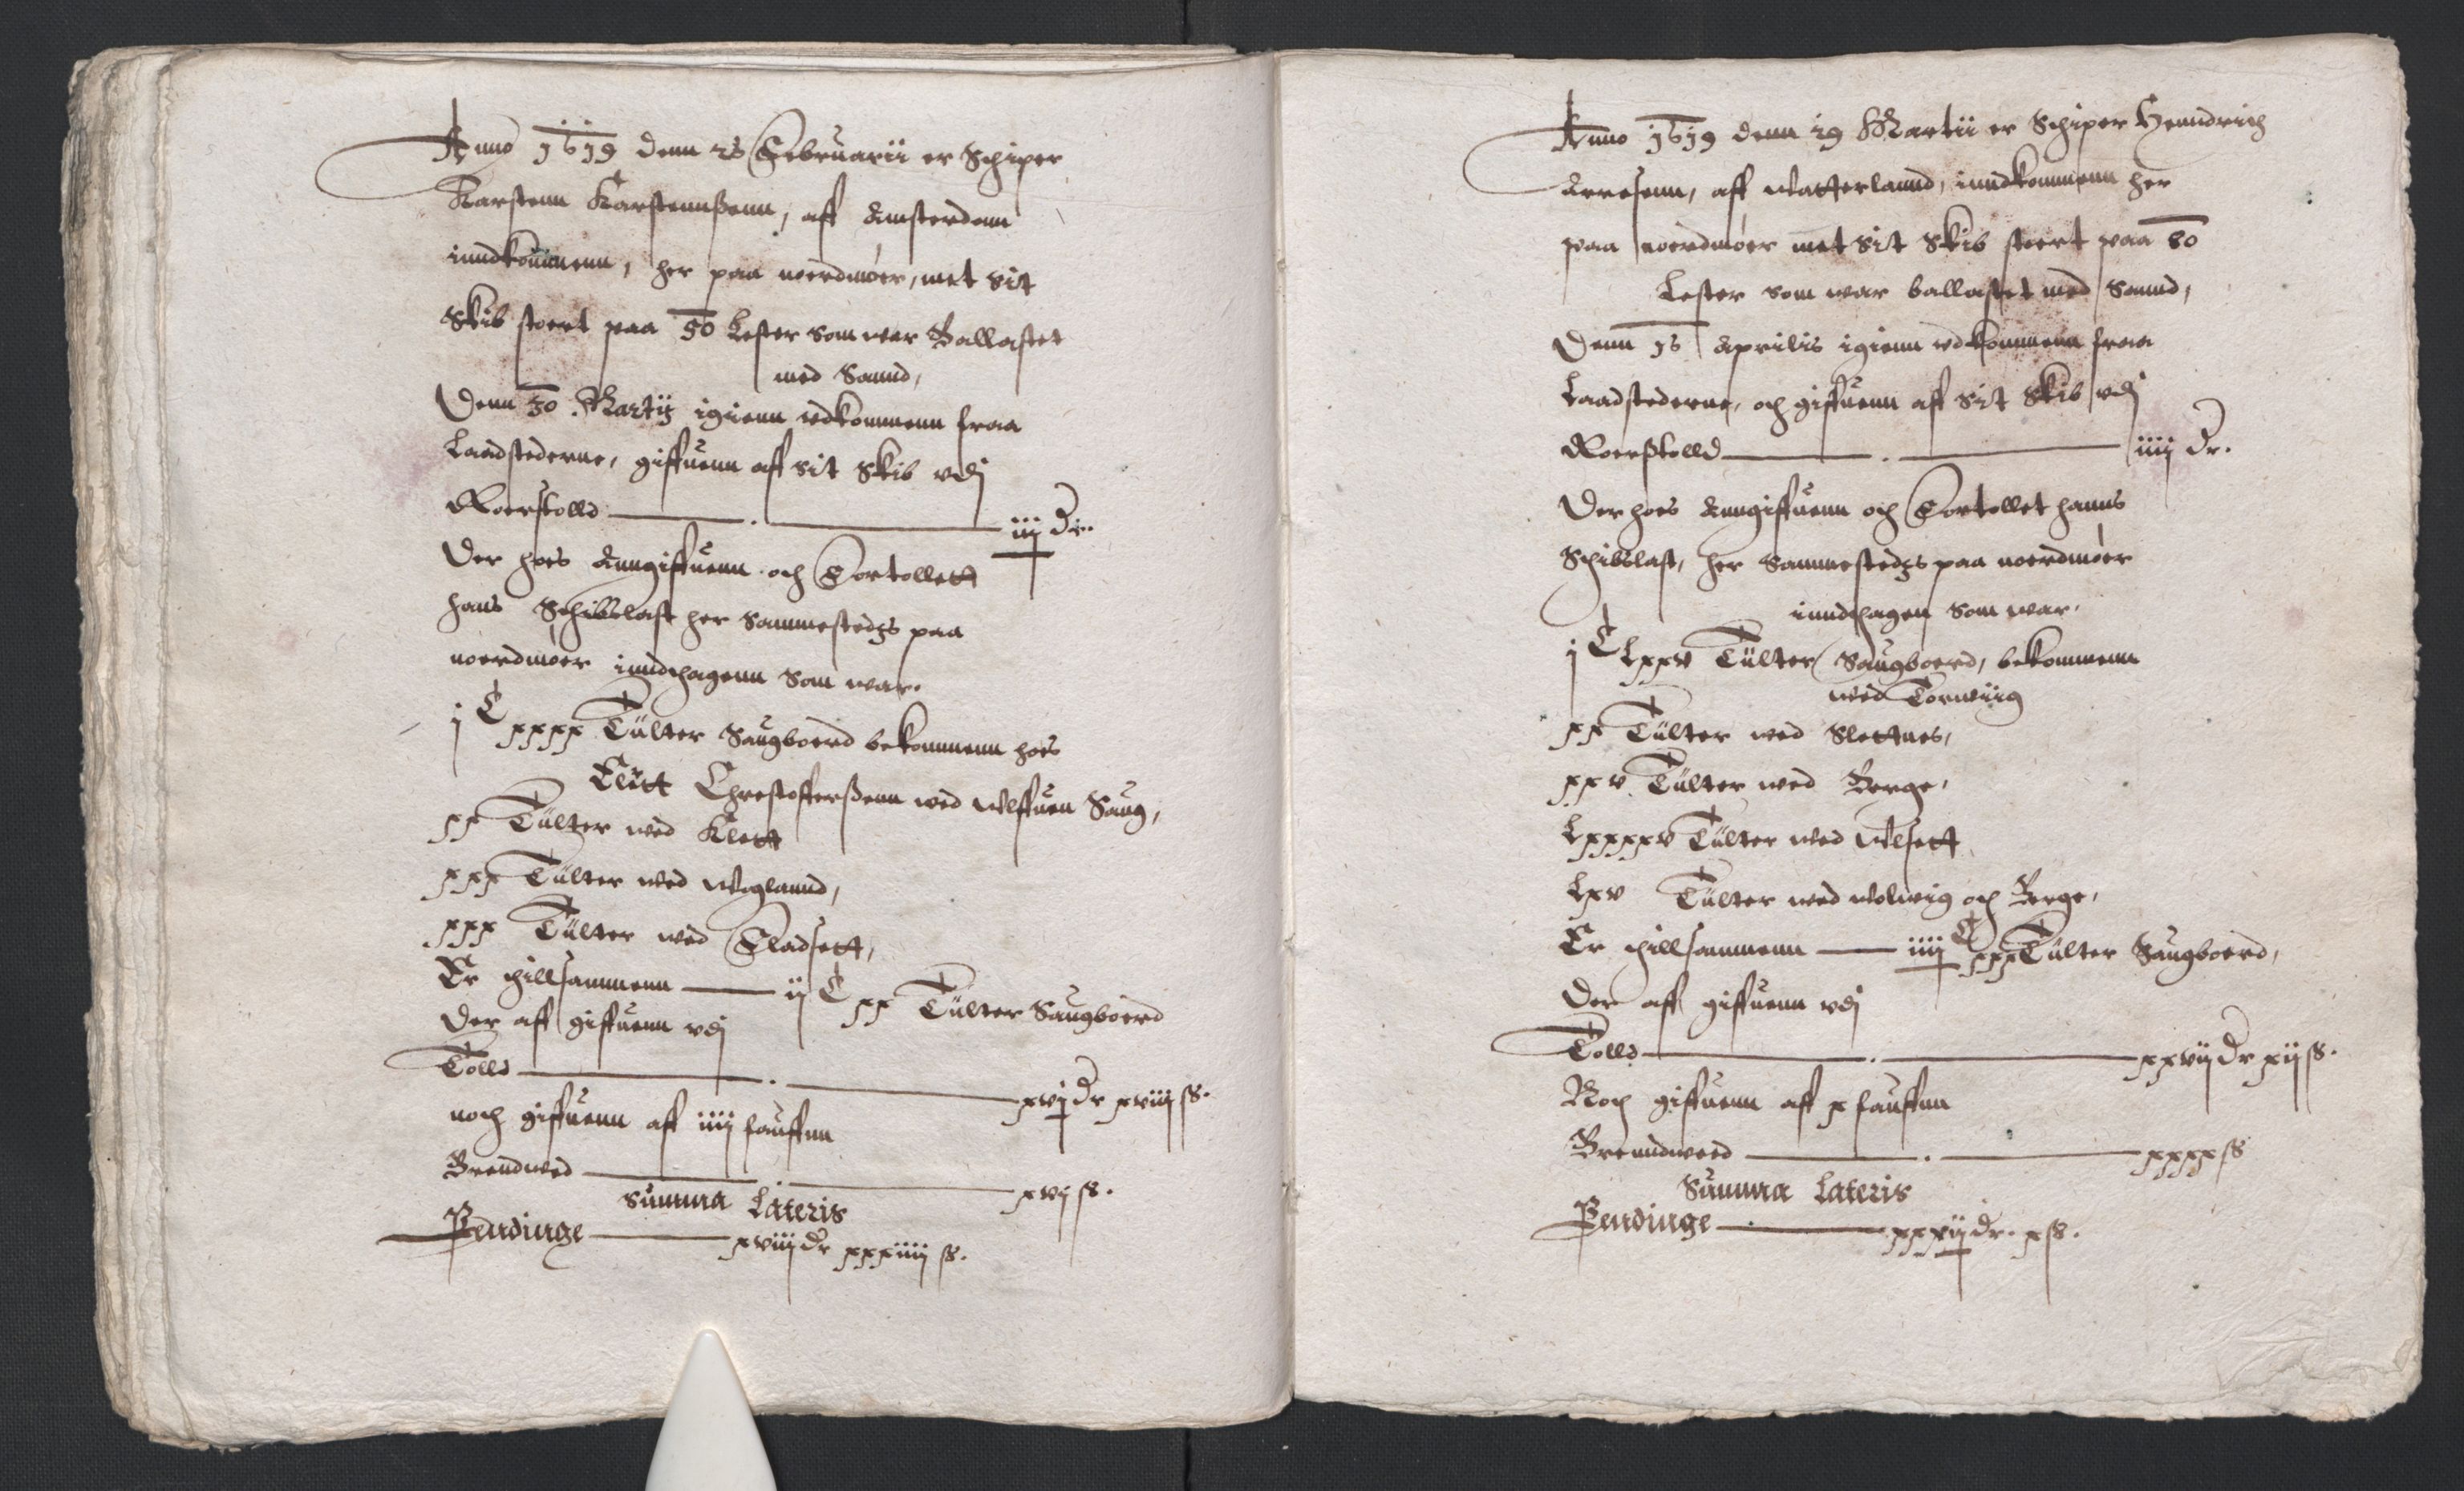 Anno 1619 denn 26 Februarii er Schiper
Karstenn Karstennßenn, aff Amsterdam
inndkommenn, her paa nordmøer, met sit
Skib stoert paa 50 Lester som war Ballastet
med Sannd,
Denn 30 Martij igienn vdkommenn fraa
Laadstederne, giffuenn aff sit Skib vdj
Roerstolld — . — iij dr.
Der hoes Anngiffuenn och Fortollett
hans Schibslast her Sammestedzs paa
nordmøer inndthagenn som war.
j C xxxx Tülter Saugboerd bekommenn hoes
Elütt Chrestofferßenn wed Alffuen Saug,
xx Tülter wed Klett
xxx Tülter wed Weglannd,
xxx Tülter wed Fladsett,
Er thillsammenn — ij C xx Tülter Saugboerd
Der aff giffuenn vdj
Tolld — . — xvj dr xviij ß.
noch giffuenn aff iiij fauffnn
Brendwed — . — xvj ß.
Summa Lateris
Pendinge — xviiij dr xxxiiij ß.
Anno 1619 denn 19 Martii er Schiper Henndrich
Arresenn, aff Watterlannd, inndkommenn her
paa nordmøer met sit Skib stoert paa 80
Lester som war ballastet med Sannd,
Denn 16 Aprilis igienn vdkommenn fraa
Laadstederne, och giffuenn aff sit Skib vdj
Roerßtolld — . — iiij dr.
Der hoes Anngiffuenn och Fortollet hanns
Schibslast, her Sammestedzs paa nordmøer
inndthagen som war.
j C Lxxv Tülter Saugboerd, bekommenn
wed Torwiig
xx Tülter wed Slettnes,
xxv Tülter wed Berge,
Lxxxxv Tülter wed Alsett
Lxv Tülter wed Wolwig och Berge,
Er thillsammenn — iiij C xxx Tülter Saugboerd,
Der aff giffuenn vdj
Tolld — . — xxvij dr xij ß.
Noch giffuenn aff x fauffnn
Brenndweed — . — xxxx ß
Summa Lateris
Pendinge — . — xxxij dr. x ß.